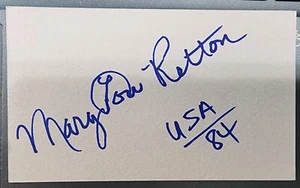 Mary Lou Retton
USA
84